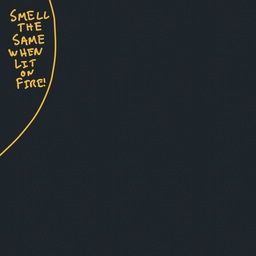 SMELL
THE
SAME
WHEN
LIT
ON
FIRE!